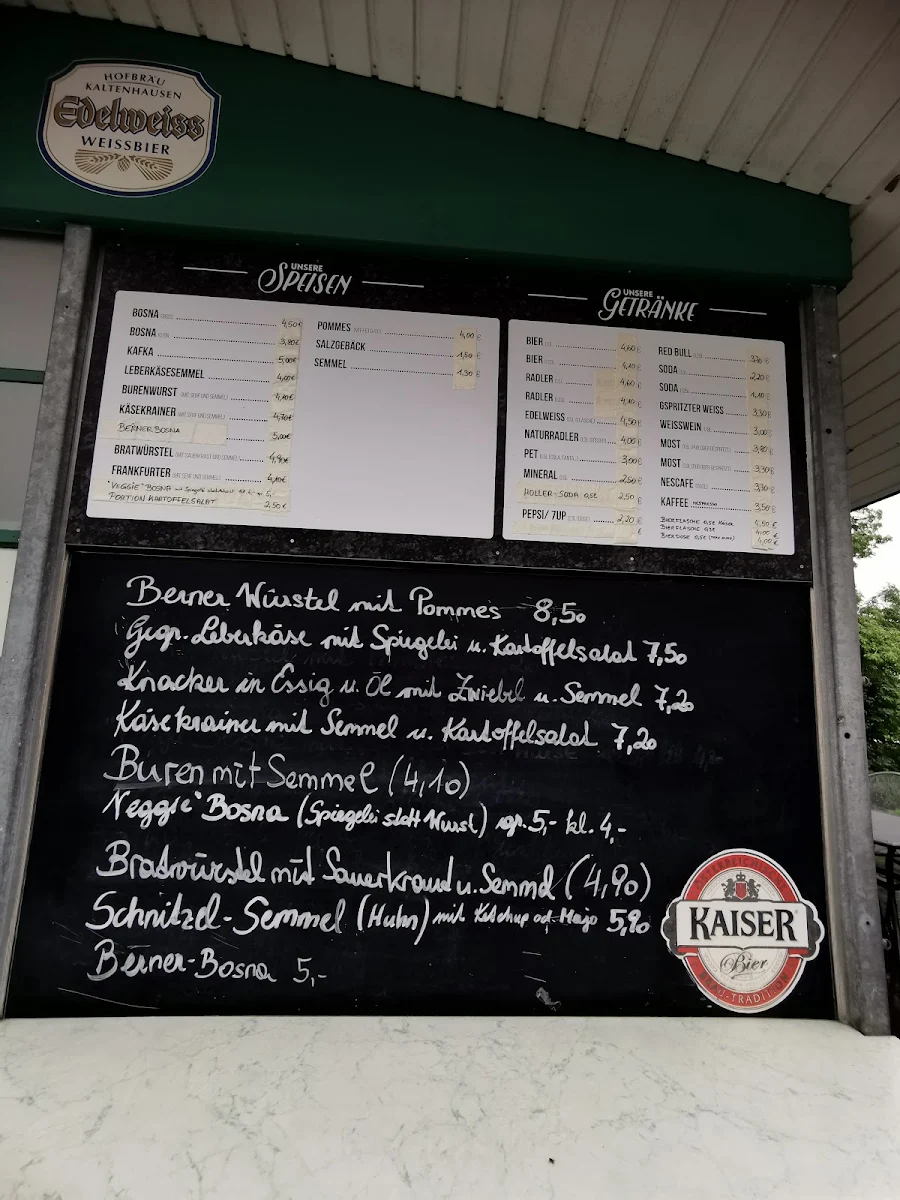 HOFBRÄU
KALTENHAUSEN
Edelweiss
WEISSBIER
UNSERE
SPEISEN
BOSNA 4,50€
BOSNA 3,80€
KAFKA 5,00€
LEBERKÄSESEMMEL 4,00€
BURENWURST (MIT SENF UND SEMMEL) 4,10€
KÄSEKRAINER (MIT SENF UND SEMMEL) 4,70€
BERNER BOSNA 5,00€
BRATWÜRSTEL (MIT SAUERKRAUT UND SEMMEL) 4,90€
FRANKFURTER (MIT SENF UND SEMMEL) 4,10€
"VEGGIE" BOSNA
PORTION KARTOFFELSALAT 2,50€
POMMES 4,00 €
SALZGEBÄCK 1,50 €
SEMMEL 1.30 €
UNSERE
GETRÄNKE
BIER 4,60 €
BIER 4,10 €
RADLER 4,60 €
RADLER 4,10 €
EDELWEISS 4,50 €
NATURRADLER 4,00 €
PET 3,00 €
MINERAL 2,50 €
HOLLER-SODA 0,5l 2,50 €
PEPSI/ 7UP 2,20 €
RED BULL 3,70 €
SODA 2,20 €
SODA 1,10 €
GSPRITZTER WEISS 3,30 €
WEISSWEIN 3,00 €
MOST 3,80 €
MOST 3,30 €
NESCAFE 3,30 €
KAFFEE NESPRESSO 3,50 €
BIERFLASCHE 0,5l Kaiser 4,50 €
BIERFLASCHE 4,00 €
BIERDOSE 0,5l 4,00 €
Berner Würstel mit Pommes 8,50
Gegr. Leberkäse mit Spiegelei u. Kartoffelsalat 7,50
Knacker in Essig u. Öl mit Zwiebel u. Semmel 7,20
Käsekrainer mit Semmel u. Kartoffelsalat 7,20
Buren mit Semmel (4,10)
"Veggie" Bosna (Spiegelei statt Wurst) gr. 5,- kl. 4,-
Bradwürstel mit Sauerkraud u. Semmel (4,90)
Schnitzel-Semmel (Huhn) mit Ketchup od. Mayo 5,90
Berner-Bosna 5,-
KAISER
Bier